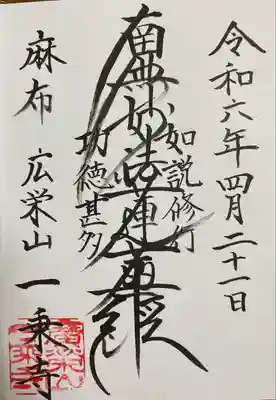 令和六年四月二十一日
如説修行
南無妙法蓮華経
功徳甚多
麻布 広栄山 一乗寺